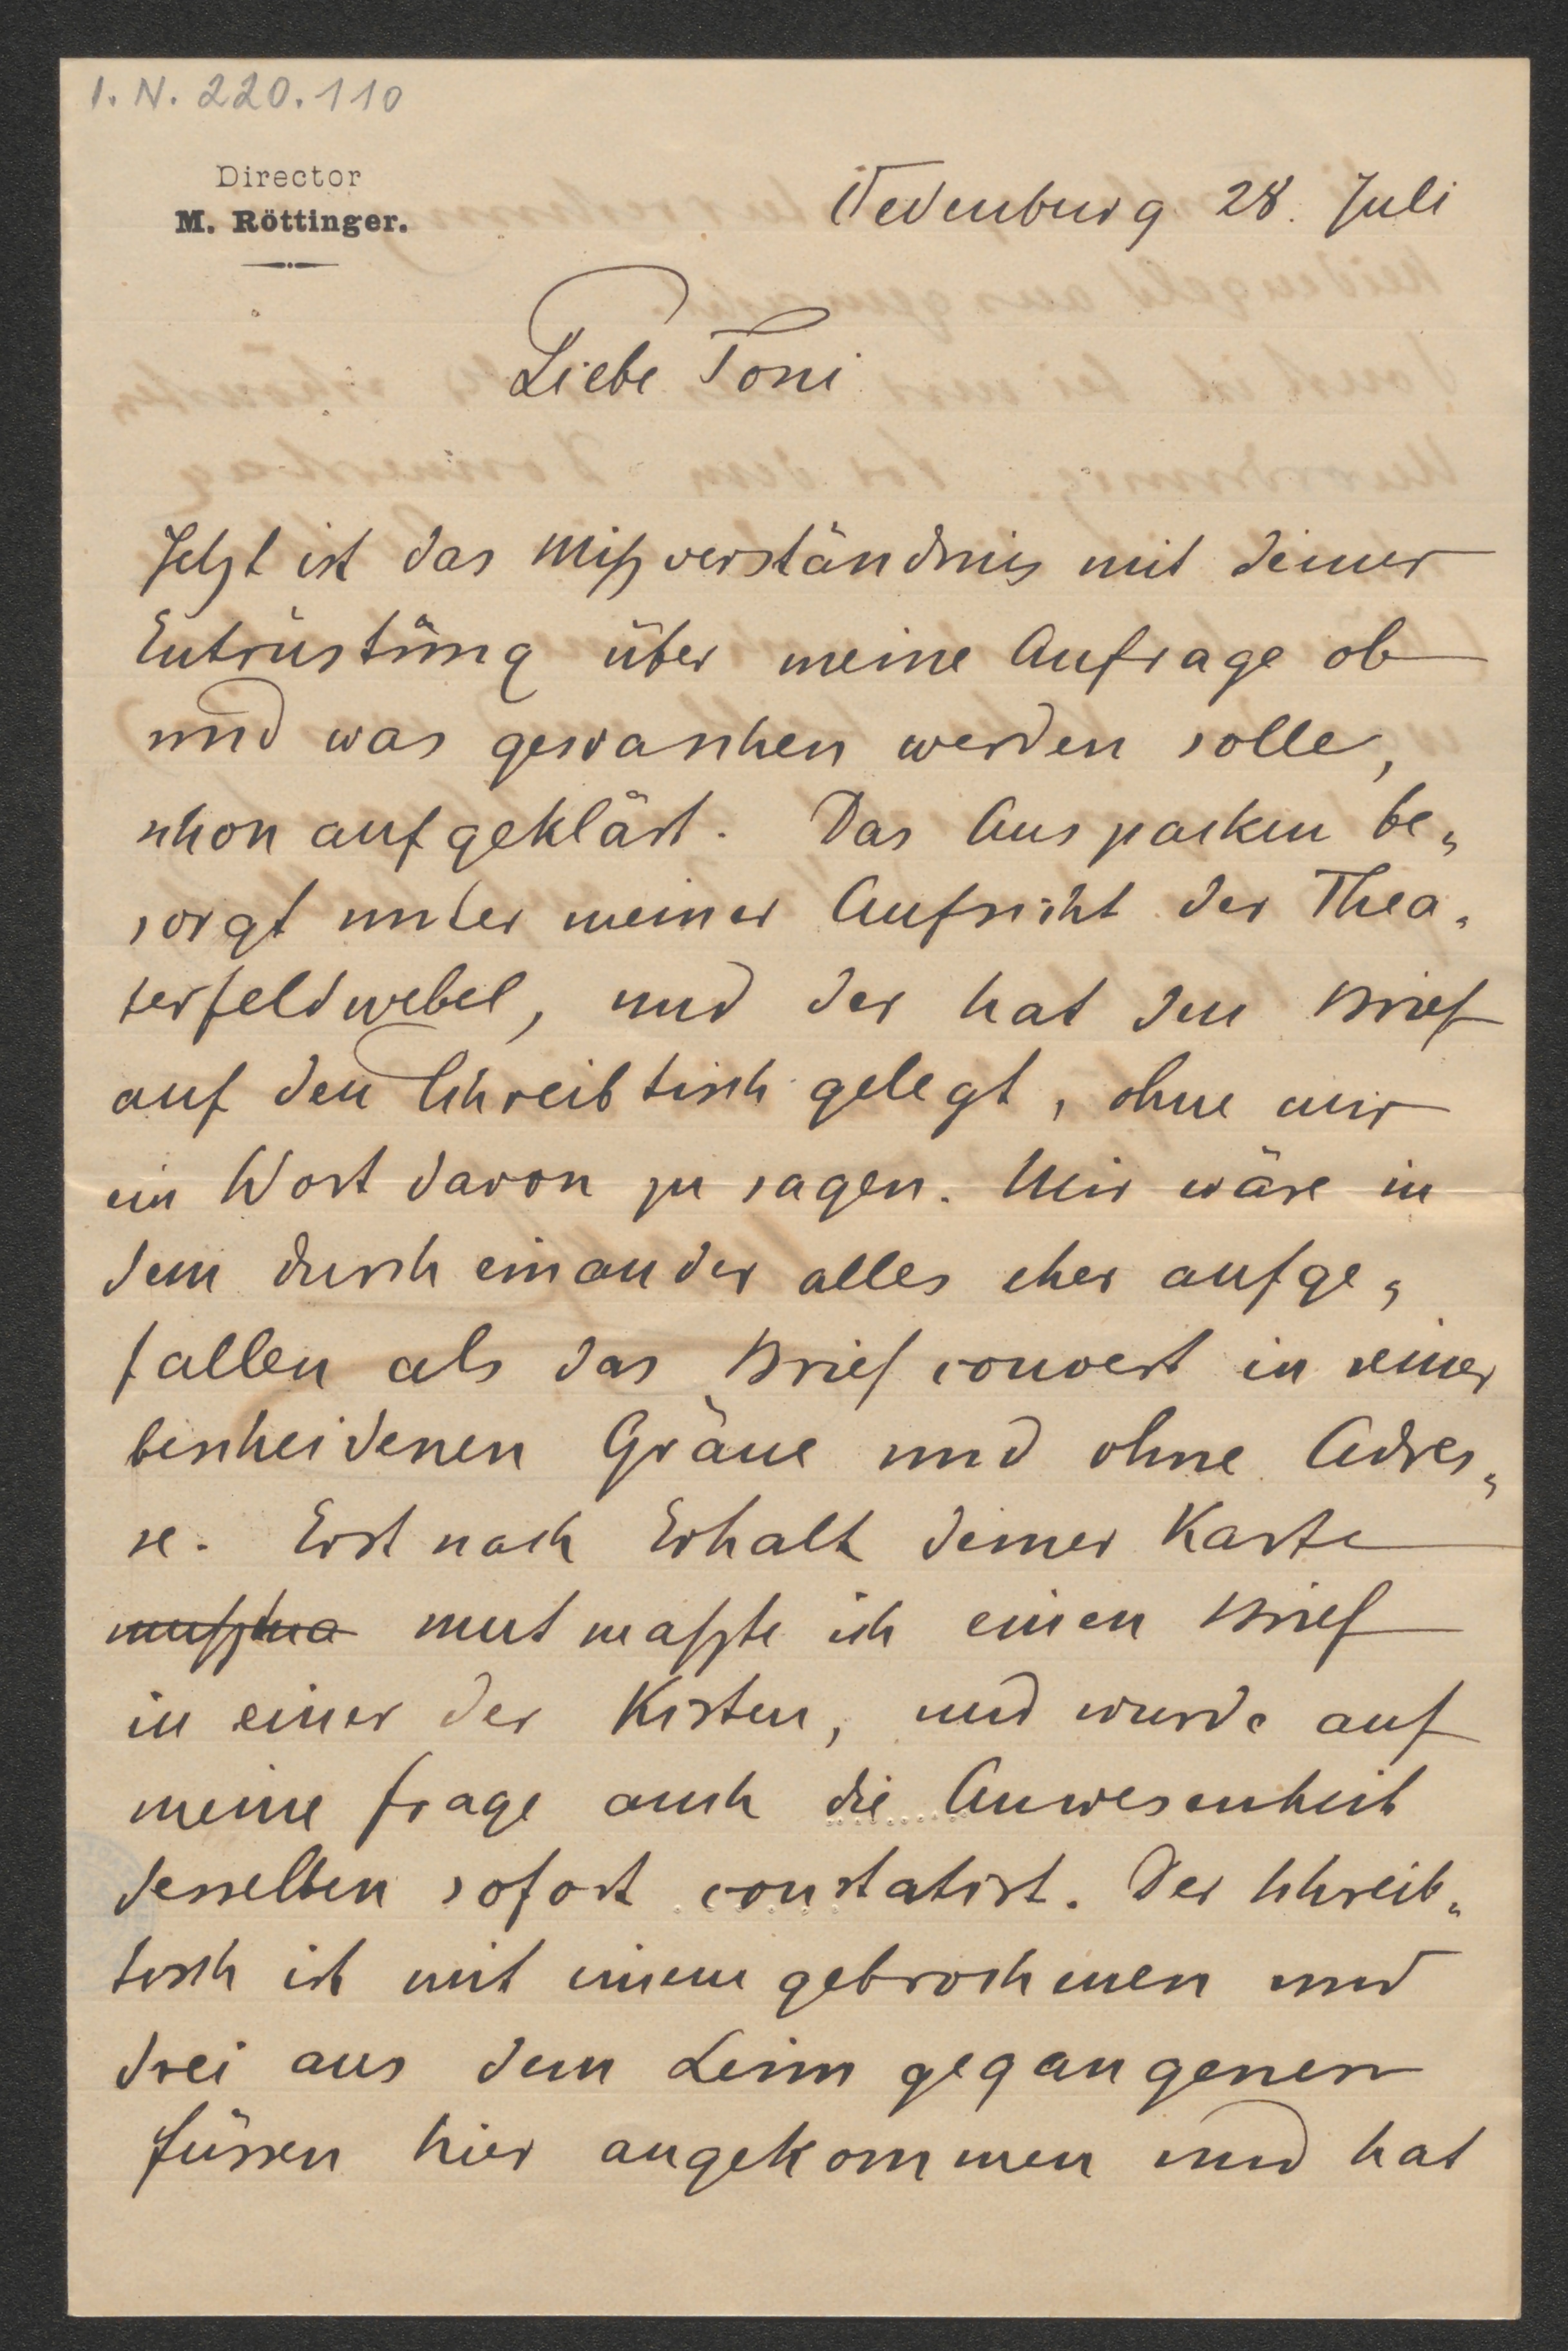 I. N. 220.110
Director
M. Röttinger.
Oedenburg 28. Juli
Liebe Toni
Jetzt ist das Mißverständnis mit deiner
Entrüstung über meine Anfrage ob
und was gewaschen werden solle,
schon aufgeklärt. Das Auspacken be„
sorgt unter meiner Aufsicht der Thea„
terfeldwebel, und der hat den Brief
auf den Schreibtisch gelegt, ohne mir
ein Wort davon zu sagen. Mir wäre in
dem durcheinander alles eher aufge„
fallen als das Briefcouvert in seiner
bescheidenen Gräue und ohne Adres„
se. Erst nach Erhalt deiner Karte
mutmaßte ich einen Brief
in einer der Kisten, und wurde auf
meine Frage auch die Anwesenheit
desselben sofort constatirt. Der Schreib„
tisch ist mit einem gebrochenen und
drei aus dem Leim gegangenen
Füssen hier angekommen und hat